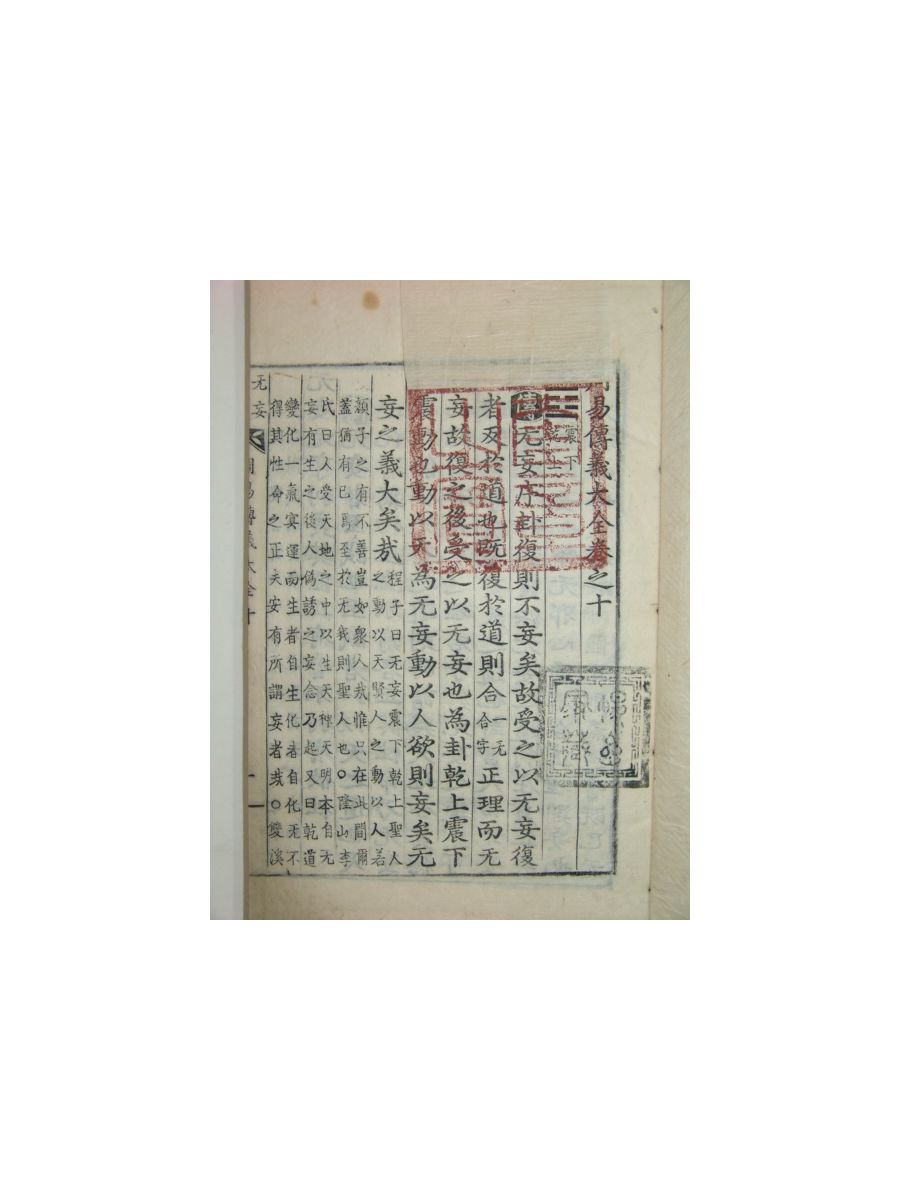 易傳義大全卷之十
震下
乾上
傳无妄序卦復則不妄矣故受之以无妄復
者反於道也旣復於道則合一无合字正理而无
妄故復之後受之以无妄也為卦乾上震下
震動也動以天為无妄動以人欲則妄矣无
妄之義大矣哉程子曰无妄震下乾上聖人
之動以天賢人之動以人若
顏子之有不善豈如衆人哉惟只在此間爾
蓋猶有已焉至於无我則聖人也○隆山李
氏曰人受天地之中以生天神天明本自无
妄有生之後人僞誘之妄念乃起又曰乾道
變化一氣㝠運而生者自生化者自化无不
得其性命之正夫安有所謂妄者哉○雙溪
无妄
周易傳義大全十
一